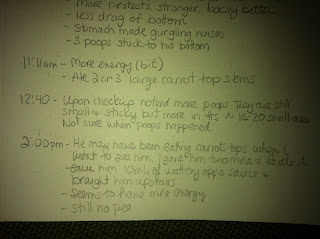 - More protests, stronger, looking better
- less drag of bottom
- Stomach made gurgling noises
- 3 poops stuck to his bottom
11:11am - More energy (bit)
- Ate 2 or 3 large carrot top stems
12:40 - Upon checkup noticed more poops They are still
small & sticky but more in #s ~ 15-20 small ones
Not sure when poops happened.
2:00pm - He may have been eating carrot tops when I
went to see him. I gave him two more & he ate it
- Gave him 10mL of watery apple sauce &
brought him upstairs
- Seems to have more energy
- Still no pee